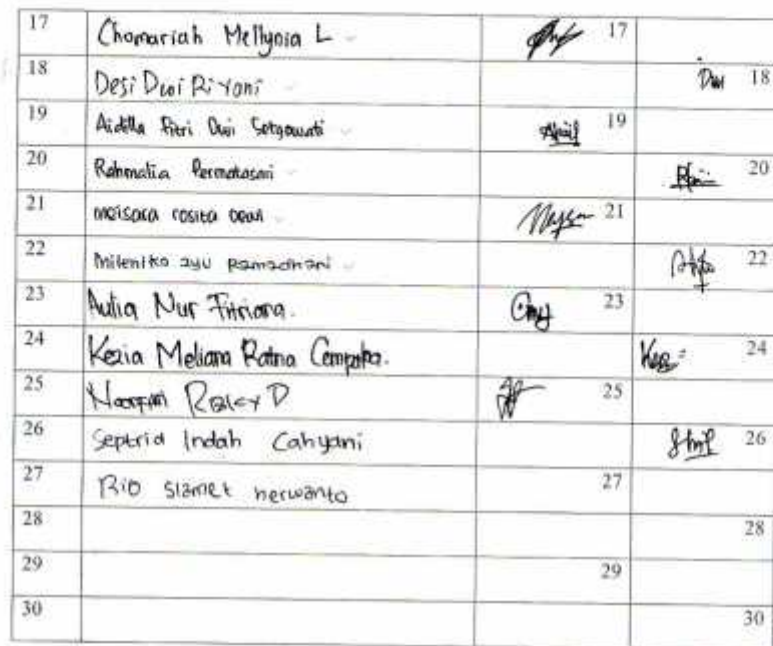 17 Chomariah Mellynia L 17
18 Desi Dwi Riyoni Dwi 18
19 Aidella Fitri Dwi Setyowati 19
20 Rahmalia Permatasari 20
21 meisara rosita dewi 21
22 milenika ayu ramadhani 22
23 Aulia Nur Fitriana. 23
24 Kezia Meliana Ratna Cempaka. 24
25 D 25
26 Septria Indah Cahyani 26
27 Rio slamet herwanto 27
28 28
29 29
30 30